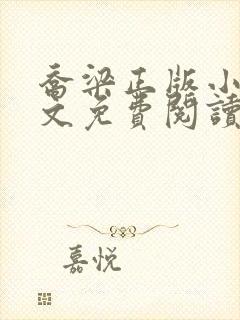 喬梁正版小
文免費閱讀
嘉悅